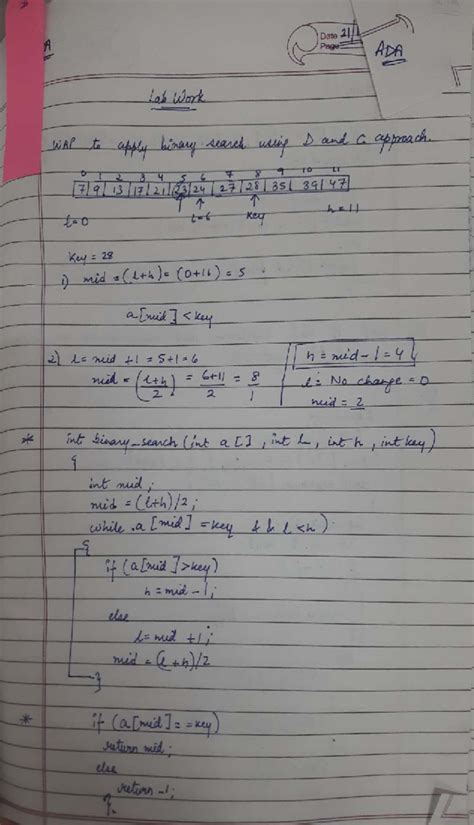 Date 21/1
Page
ADA
A
Lab Work
WAP to apply binary search using D and C approach.
0 1 2 3 4 5 6 7 8 9 10 11
7 9 13 17 21 23 24 27 28 35 39 47
l=0 l=6 key h=11
Key = 28
1) mid = (l+h) = (0+11) = 5
a[mid] < key
2) l = mid +1 = 5+1 = 6
mid = (l+h)/2 = 6+11/2 = 8/1
h = mid-1 = 4
l = No change = 0
mid = 2
* int binary_search (int a[], int l, int h, int key)
{
int mid;
mid = (l+h)/2;
while a[mid] = key && l<h)
{
if (a[mid]>key)
h = mid-1;
else
l = mid +1;
mid = (l+h)/2
}
* if (a[mid]==key)
return mid;
else
return -1;
}